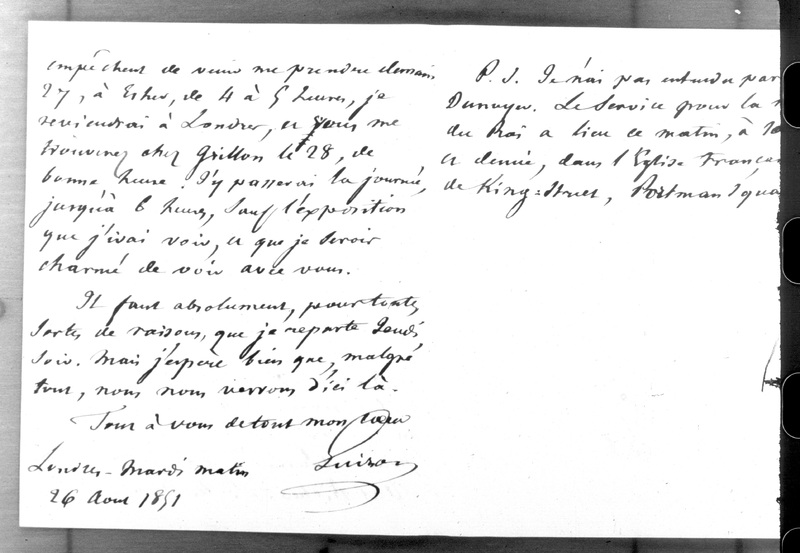 empêchent de venir me prendre demain
27, à Esher, de 4 à 5 heures, je
reviendrai à Londres, et vous me
trouverez chez Grillon le 28, de
bonne heure. J'y passerai la journée,
jusqu'à 6 heures, sauf l'exposition
que j'irai voir, et que je serois
charmé de voir avec vous.
Il faut absolument, pour toutes
sortes de raisons, que je reparte Jeudi
soir. Mais j'espère bien que, malgré
tout, nous nous verrons d'ici là.
Tout à vous de tout mon cœur
Guizot
Londres - Mardi matin
26 Aout 1851
P. S. Je n'ai pas entendu par
Dunoyer. Le Service pour la
du Roi a lieu ce matin, à 10
et demie, dans l'Eglise França
de King-Street, Portman Squa